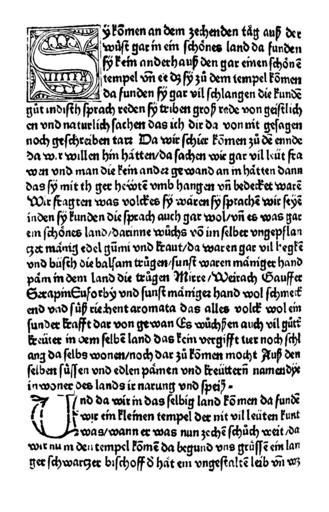 Sy kōmen an dem zechenden tåg auß der
wůst gar in ein schōnes land da funden
sy kein anderhauß den gar einen schonē
tempel vn̄ ee dz sy zů dem tempel kōmen
da funden sy gar vil schlangen die kunde
gůt indisch sprach reden sy triben groß rede von geistlich
en vnd naturlich sachen das ich dir da von nit gesagen
noch geschreiben tarz Da wir schier kōmen zů dē ennde
da wir willen hin hatten/da sachen wie gar vil leüt fra
wen vnd man die kein ander gewand an in hatten dann
das sy mit heüten vmb hangen vn̄ bedecket warē
Wir fragten was volckes sy wåren sy sprachē wir seyē
inden sy kunden die sprach auch gar wol/vn̄ es was gar
ein schōnes land/darinne wůchs vō im selber vngepflan
czet mānig edel gūmi vnd kraut/da waren gar vil
vnd büsch die balsam trůgen/sunst waren maniger hand
påm in dem land die trůgen Mirre/Weirach
vnd sunst māniger hand wol schmeck
end vnd sůß riechent aromata das alles volck wol ein
sunder krafft dar von gewan Es wůchsen auch vil gůte
kreüter in dem selbē land das kein vergifft tier noch schl
ang da selbs wonen/noch dar zů kōmen mocht Auß den
selben sůssen vnd edlen påmen vnd kreüttern namendie
in woner des lands ir narung vnd speiß.
Und da wir in das selbig land kōmen da fundē
wir ein kleinen tempel der nit vil leüten kunt
was/wann er was nun zehē schůch weit/da
wir nun in den tempel kōmē da begund vns grüssen ein lan
ger schwarczer bischoff d̄ hat ein vngestalten leib vn̄ wz